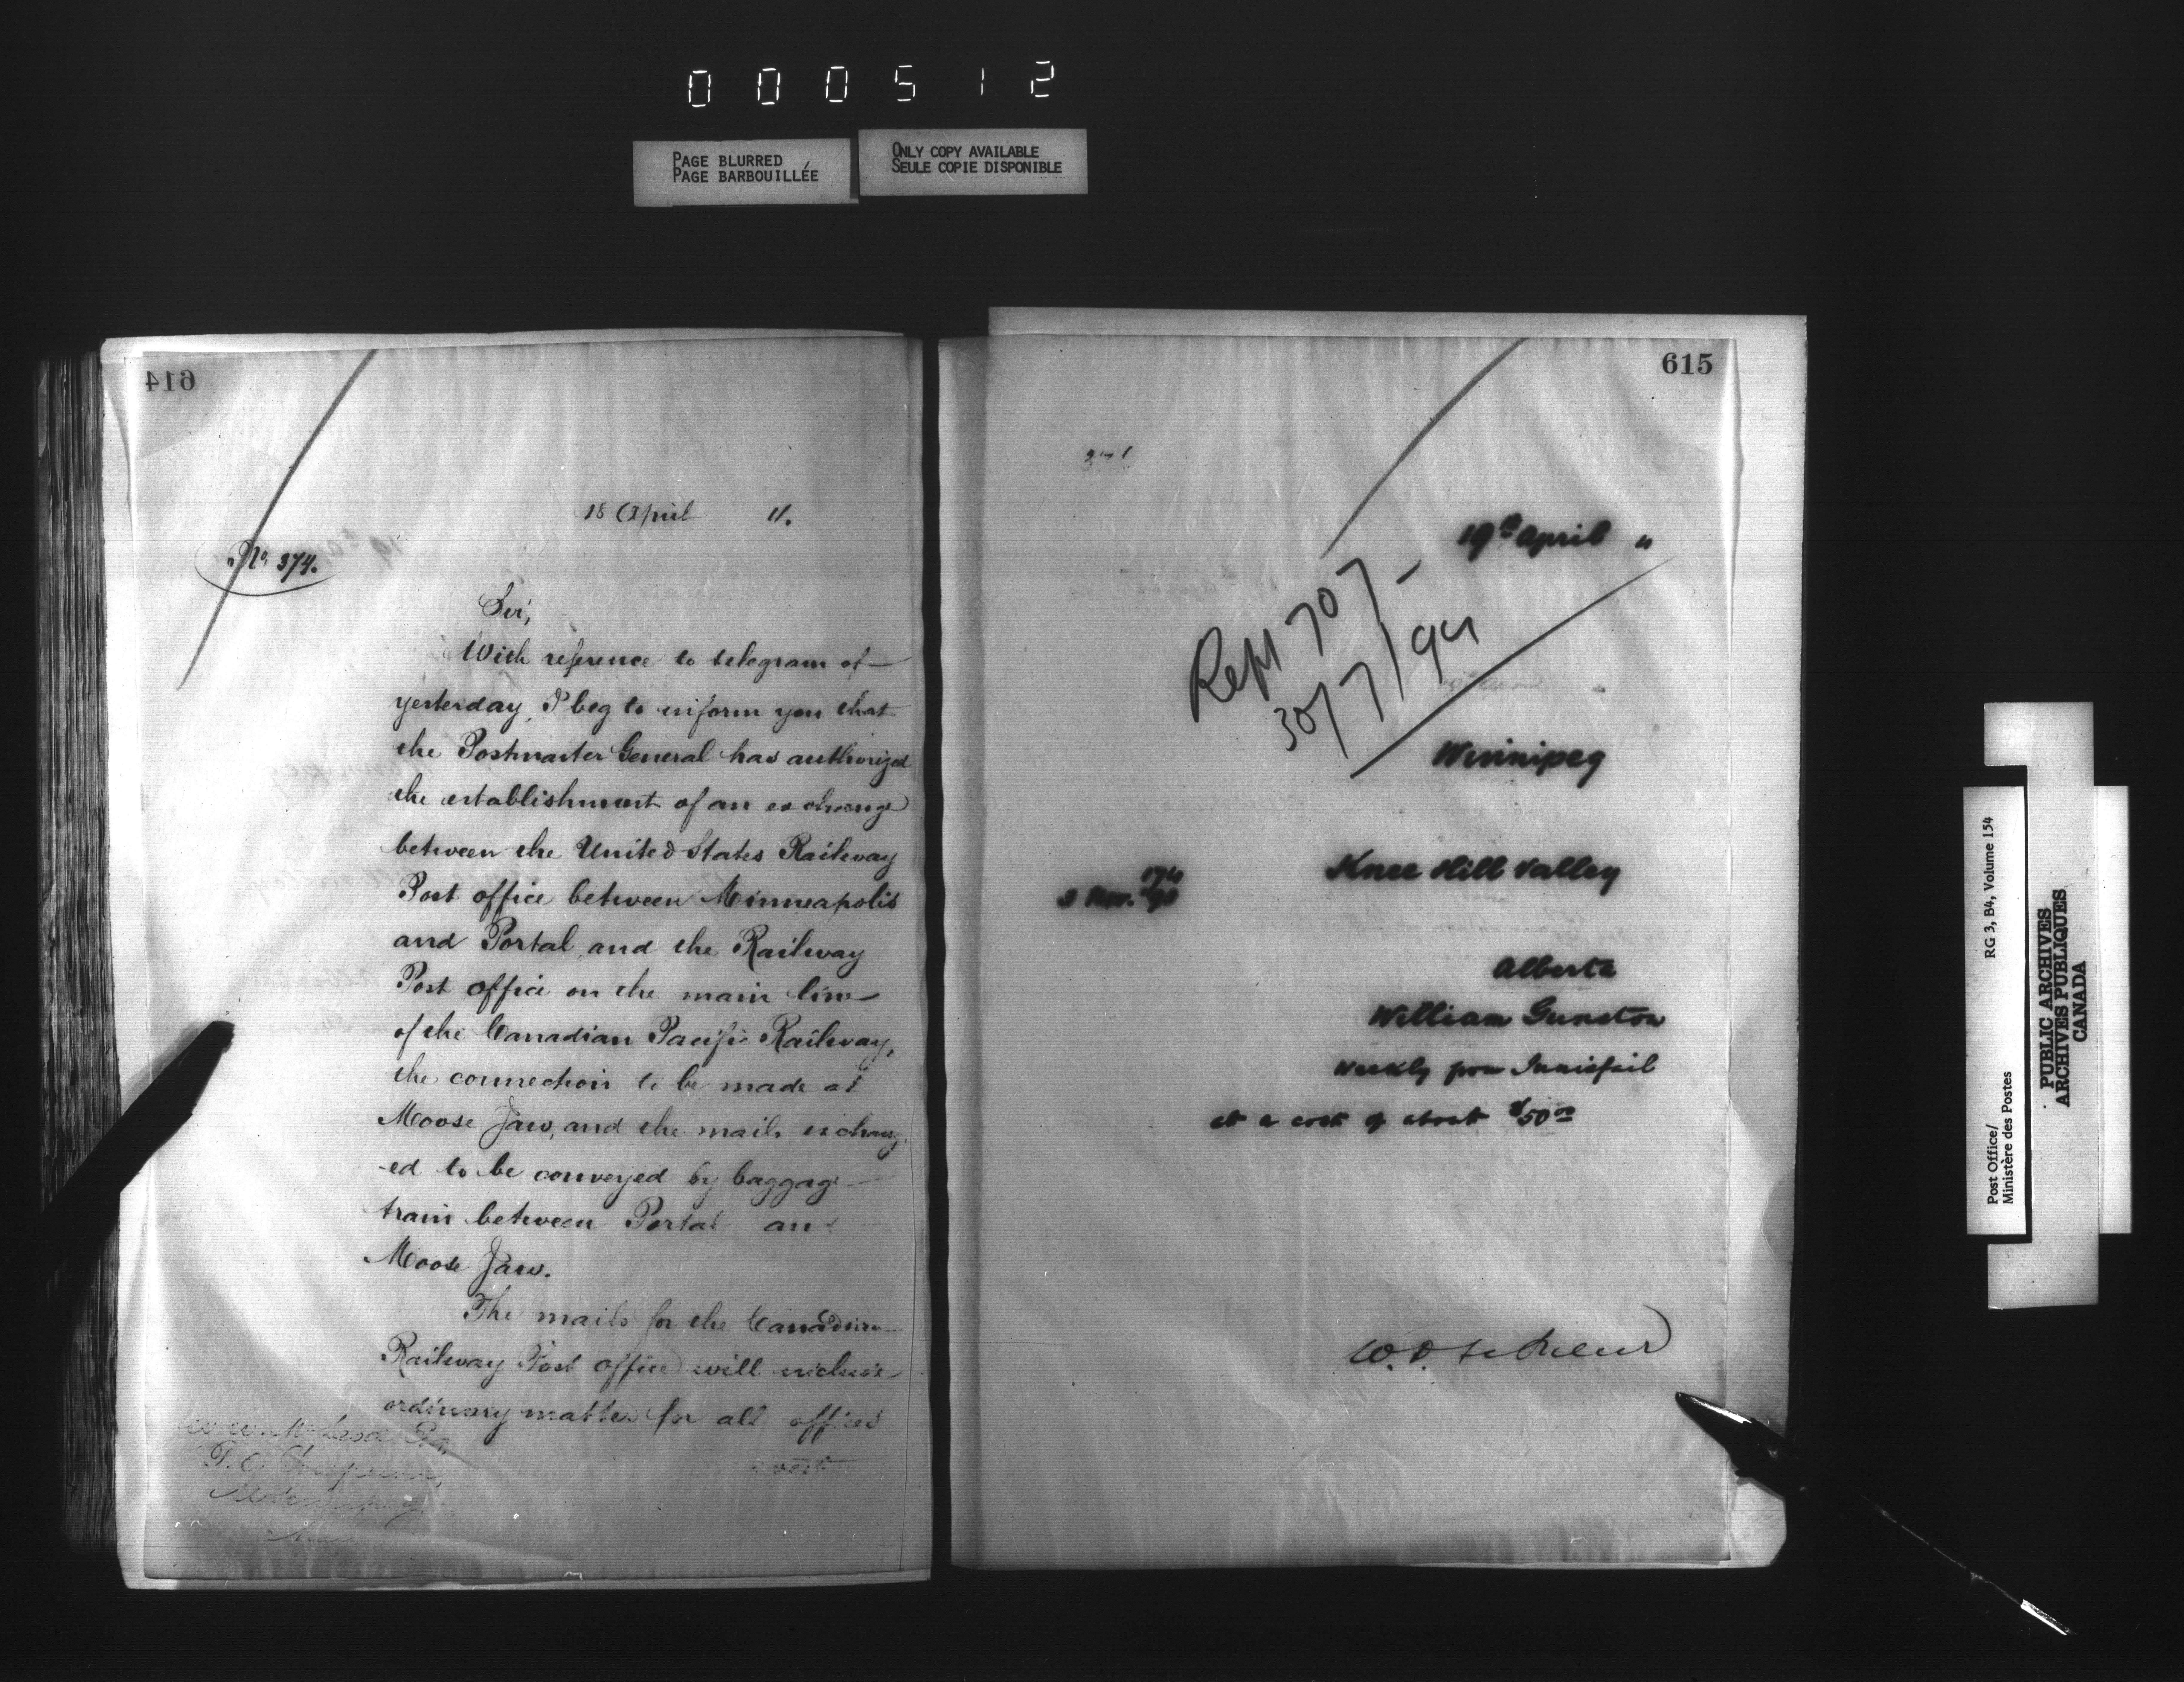 000512
PAGE BLURRED
PAGE BARBOUILLÉE
ONLY COPY AVAILABLE
SEULE COPIE DISPONIBLE
614
18 April 11.
No. 374.
Sir,
With reference to telegram of
yesterday, I beg to inform you that
the Postmaster General has authorized
the establishment of an exchange
between the United States Railway
Post office between Minneapolis
and Portal, and the Railway
Post office on the main line
of the Canadian Pacific Railway,
the connection to be made at
Moose Jaw, and the mails exchang-
-ed to be conveyed by baggage
train between Portal and
Moose Jaw.
The mails for the Canadian
Railway Post office will enclose
ordinary matter for all offices
west
P.O.
615
19th April "
Rept 707 -
30/7/94
Winnipeg
Knee Hill Valley
174
3 Nov. '93
Alberta
William Gunston
Weekly from Innisfail
at a cost of about $50 00
Post Office/
Ministère des Postes
RG 3, B4, Volume 154
PUBLIC ARCHIVES
ARCHIVES PUBLIQUES
CANADA